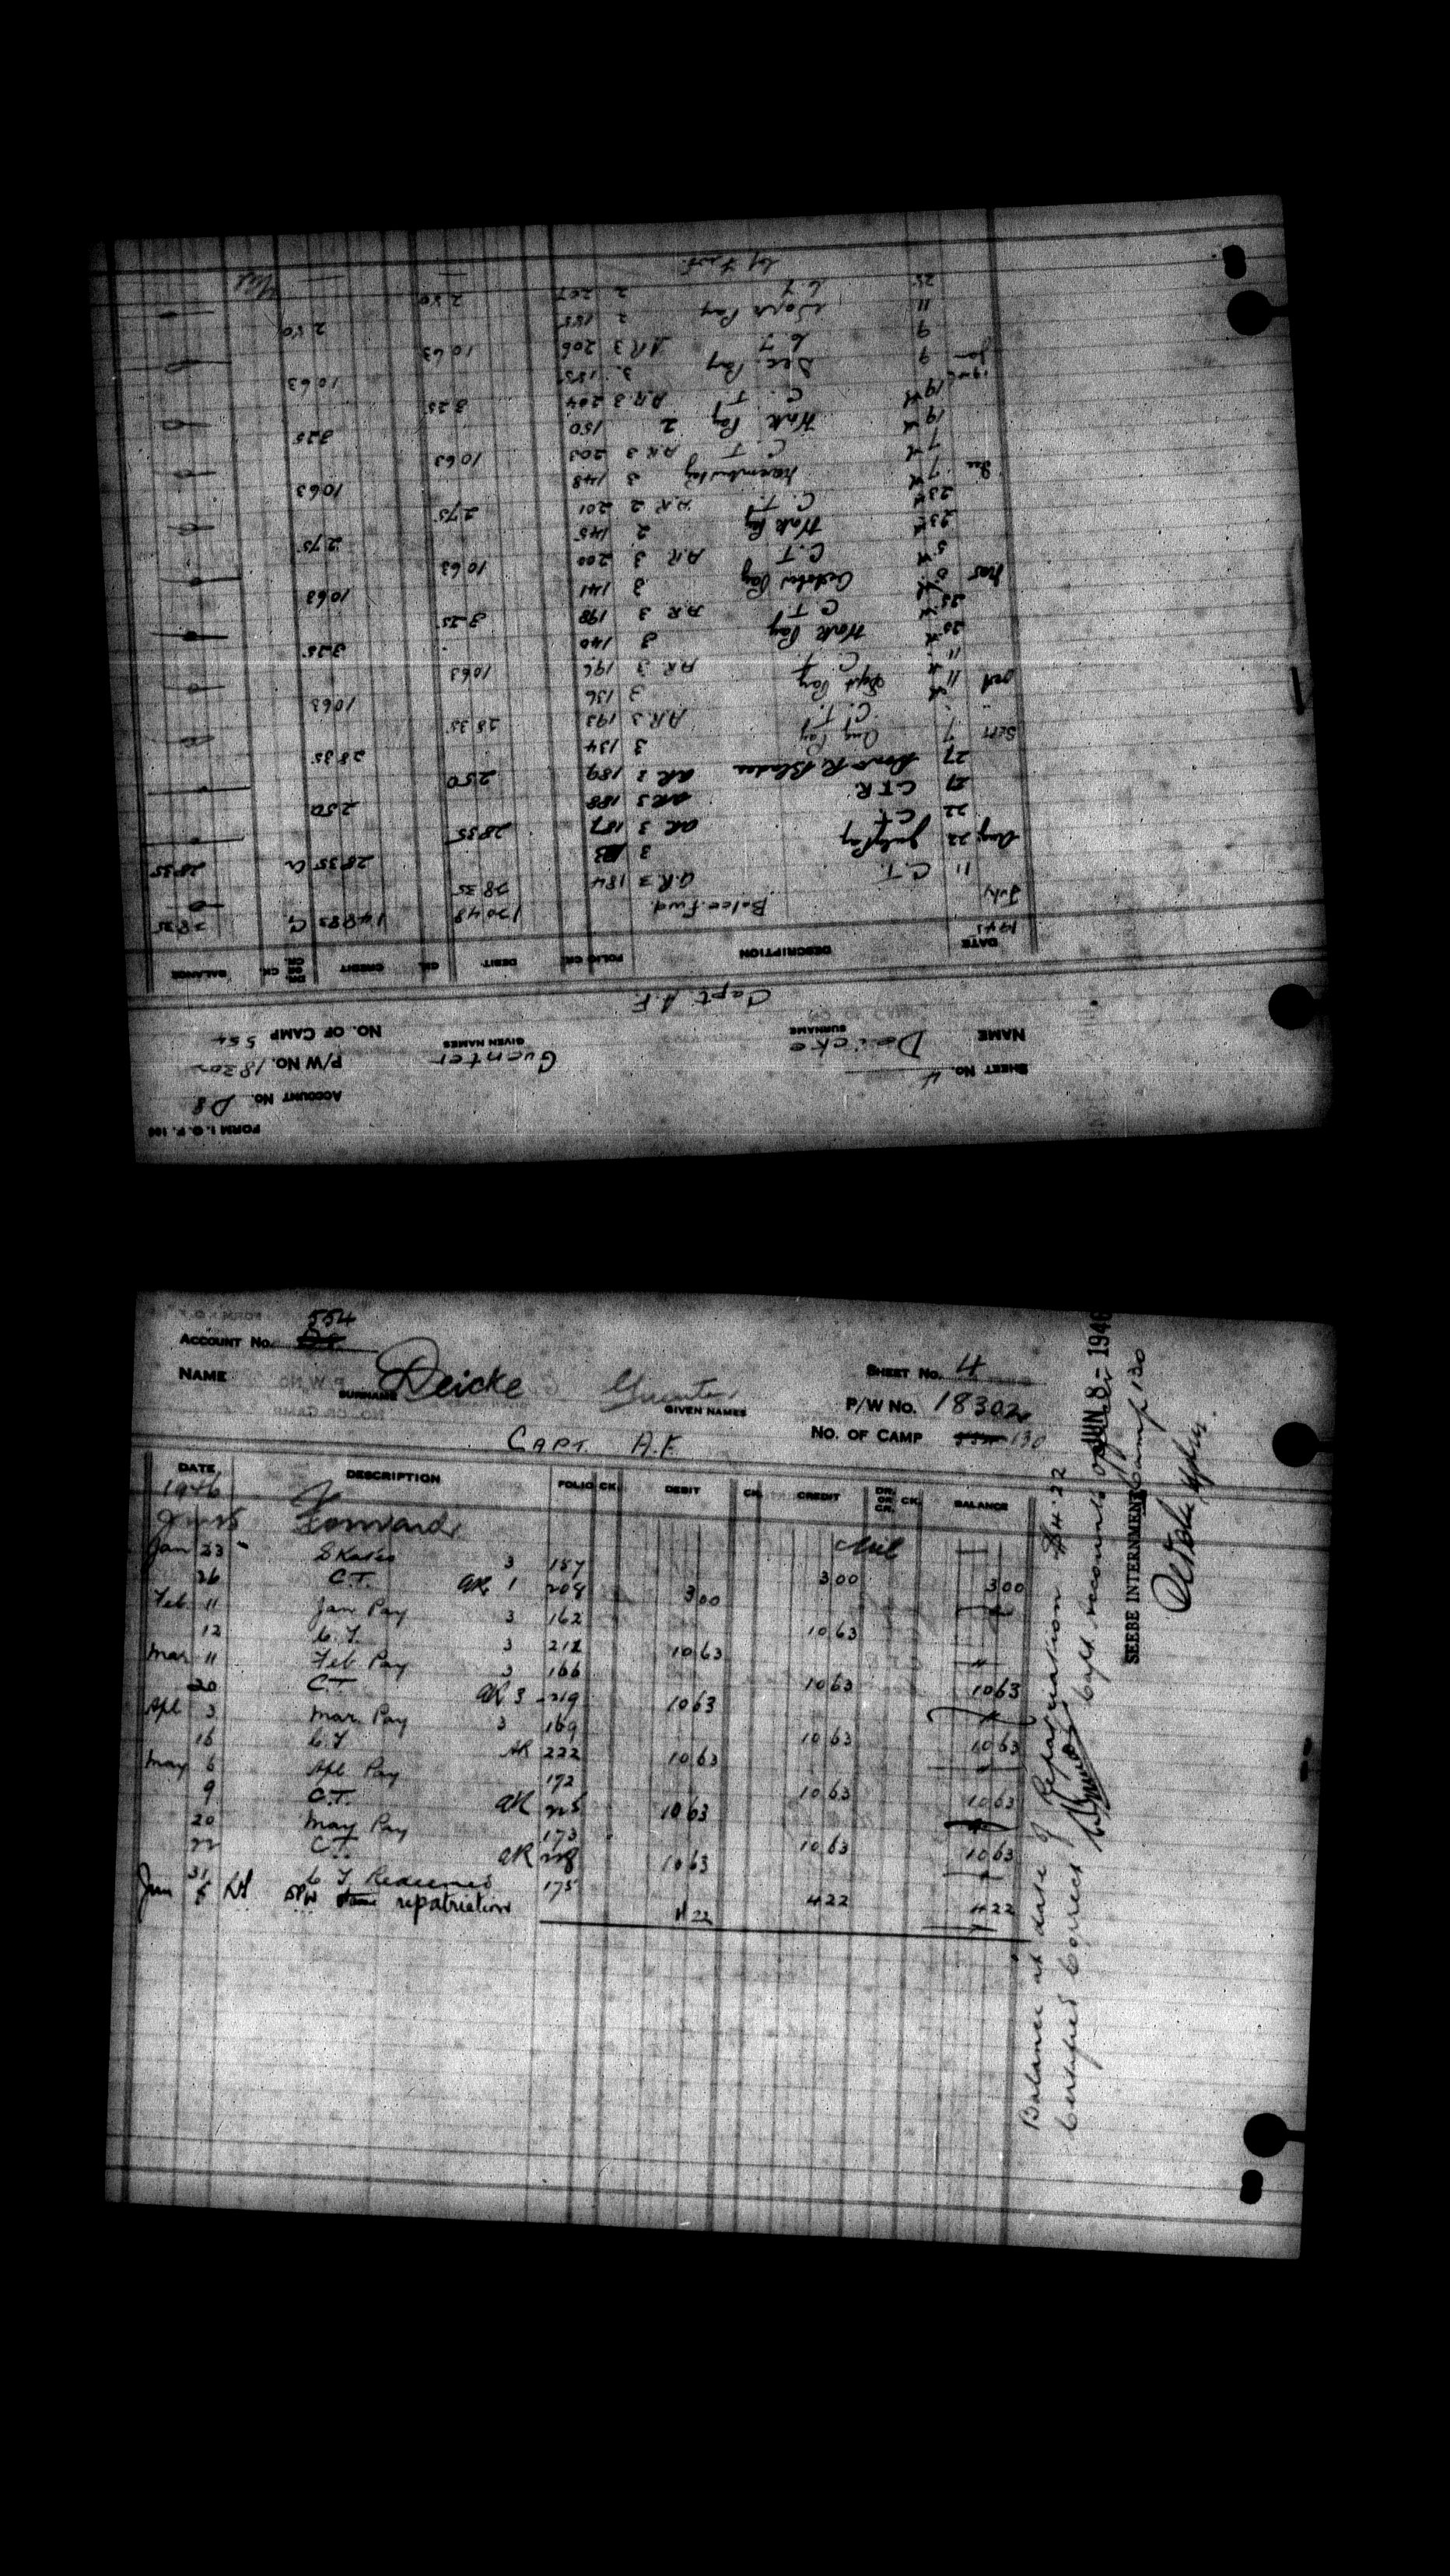 FORM I.O.P. 100
ACCOUNT NO. D8
SHEET NO. 4
P/W NO. 18302
NAME Deicke Guenter
SURNAME GIVEN NAMES
NO. OF CAMP 554
Capt. A.F.
DATE DESCRIPTION FOLIO CK. DEBIT CK. CREDIT DR. OR CR. CK. BALANCE
1945
July Balce Fwd 120 48 148 83 Cr 28 35
11 C.T. A.R. 3 184 28 35
Aug 22 July Pay 3 28 35 Cr 28 35
22 C.T. AR 3 187 28 35
27 C.T.R. AR 3 188 2 50
27 R. Blades AR 3 189 2 50
Sept 7 Aug Pay 3 134 28 35
C.T. A.R. 3 193 28 35
Oct 11 Sept Pay 3 136 10 63
11 C.T. A.R. 3 196 10 63
25 Work Pay 3 140 3 25
25 C.T. A.R. 3 198 3 25
Nov 5 October Pay 3 141 10 63
5 C.T. A.R. 3 200 10 63
23rd Work Pay 2 145 2 75
23rd C.T. A.R. 2 201 2 75
Dec 7 November Pay 3 148 10 63
7 C.T. A.R. 3 203 10 63
19 Work Pay 2 150 3 25
19 C.T. A.R. 3 204 3 25
1946
Jan 9 Dec Pay 3 155 10 63
9 C.T. A.R. 3 206 10 63
11 Work Pay 2 155 2 50
25 C.T. 2 207 2 50
Nil
554
ACCOUNT NO. D8
SHEET NO. 4
NAME Deicke Guenter
SURNAME GIVEN NAMES
P/W NO. 18302
NO. OF CAMP 554 130
CAPT. A.F.
DATE DESCRIPTION FOLIO CK. DEBIT CK. CREDIT DR. OR CR. CK. BALANCE
1946
Forward Nil
Jan 23 Skates 3 157 3 00 3 00
26 C.T. AR 1 208 3 00
Feb. 11 Jan Pay 3 162 10 63
12 C.T. 3 212 10 63
Mar 11 Feb Pay 3 166 10 63 10 63
20 C.T. AR 3 219 10 63
Apl 3 Mar. Pay 3 169 10 63 10 63
16 C.T. AR 222 10 63
May 6 Apl Pay 172 10 63 10 63
9 C.T. AR 225 10 63
20 May Pay 173 10 63 10 63
22 C.T. AR 228 10 63
31 C.T. Redeemed 175 4 22 4 22
Jun 8 repatriation 4 22
Balance at date of Repatriation $4.22
Certified Correct
Capt
Accounts Officer
Camp 130
JUN 8 - 1946
SEEBE INTERNMENT